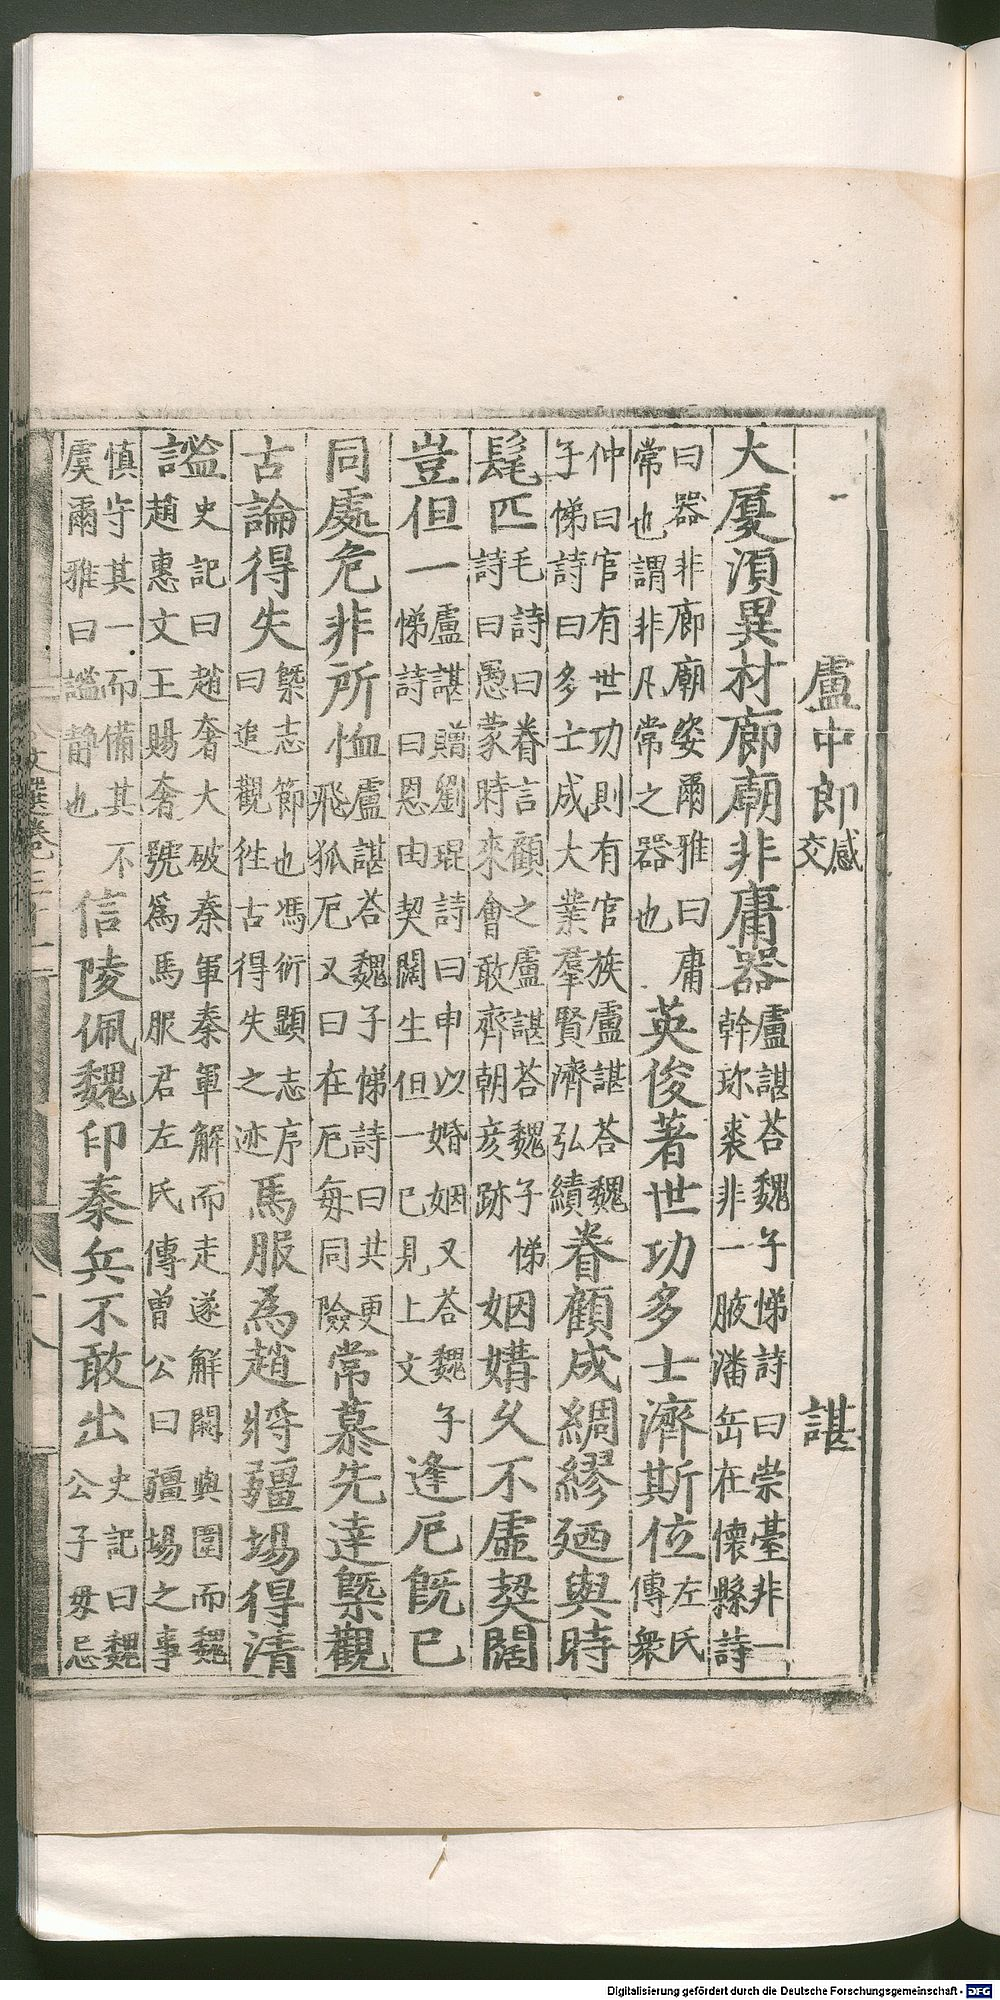 盧中郎感交　諶
大厦湏異材廊廟非庸器盧諶荅魏子悌詩曰崇臺非一幹珎裘非一腋潘岳在懷縣詩
曰器非廊廟姿爾雅曰庸常也謂非凡常之器也英俊著世功多士濟斯位左氏傳衆
仲曰官有世功則有官族盧諶荅魏子悌詩曰多士成大業羣賢濟弘績眷顧成綢繆廼與時
髦匹毛詩曰眷言顧之盧諶荅魏子悌詩曰愚蒙時來會敢齊朝彥跡姻媾久不虛契闊
豈但一盧諶贈劉琨詩曰申以婚姻又荅魏子悌詩曰恩由契闊生但一已見上文逢厄旣已
同處危非所恤盧諶荅魏子悌詩曰共更飛狐厄又曰在厄每同險常慕先達槩觀
古論得失槩志節也馮衍顯志序曰追觀徃古得失之迹馬服為趙將疆場得清
謐史記曰趙奢大破秦軍秦軍解而走遂解閼與圍而魏趙惠文王賜奢號爲馬服君左氏傳曾公曰疆場之事
慎守其一而備其不虞爾雅曰謐靜也信陵佩魏印秦兵不敢出史記曰魏公子毋忌
文選卷三十一
Digitalisierung gefördert durch die Deutsche Forschungsgemeinschaft - DFG